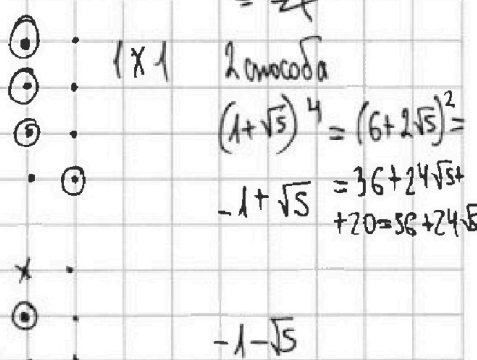 1 X 1 2 способа
(1+√5)^4 = (6+2√5)^2 =
= 36+24√5+
+20=56+24√5
-1+√5
-1-√5